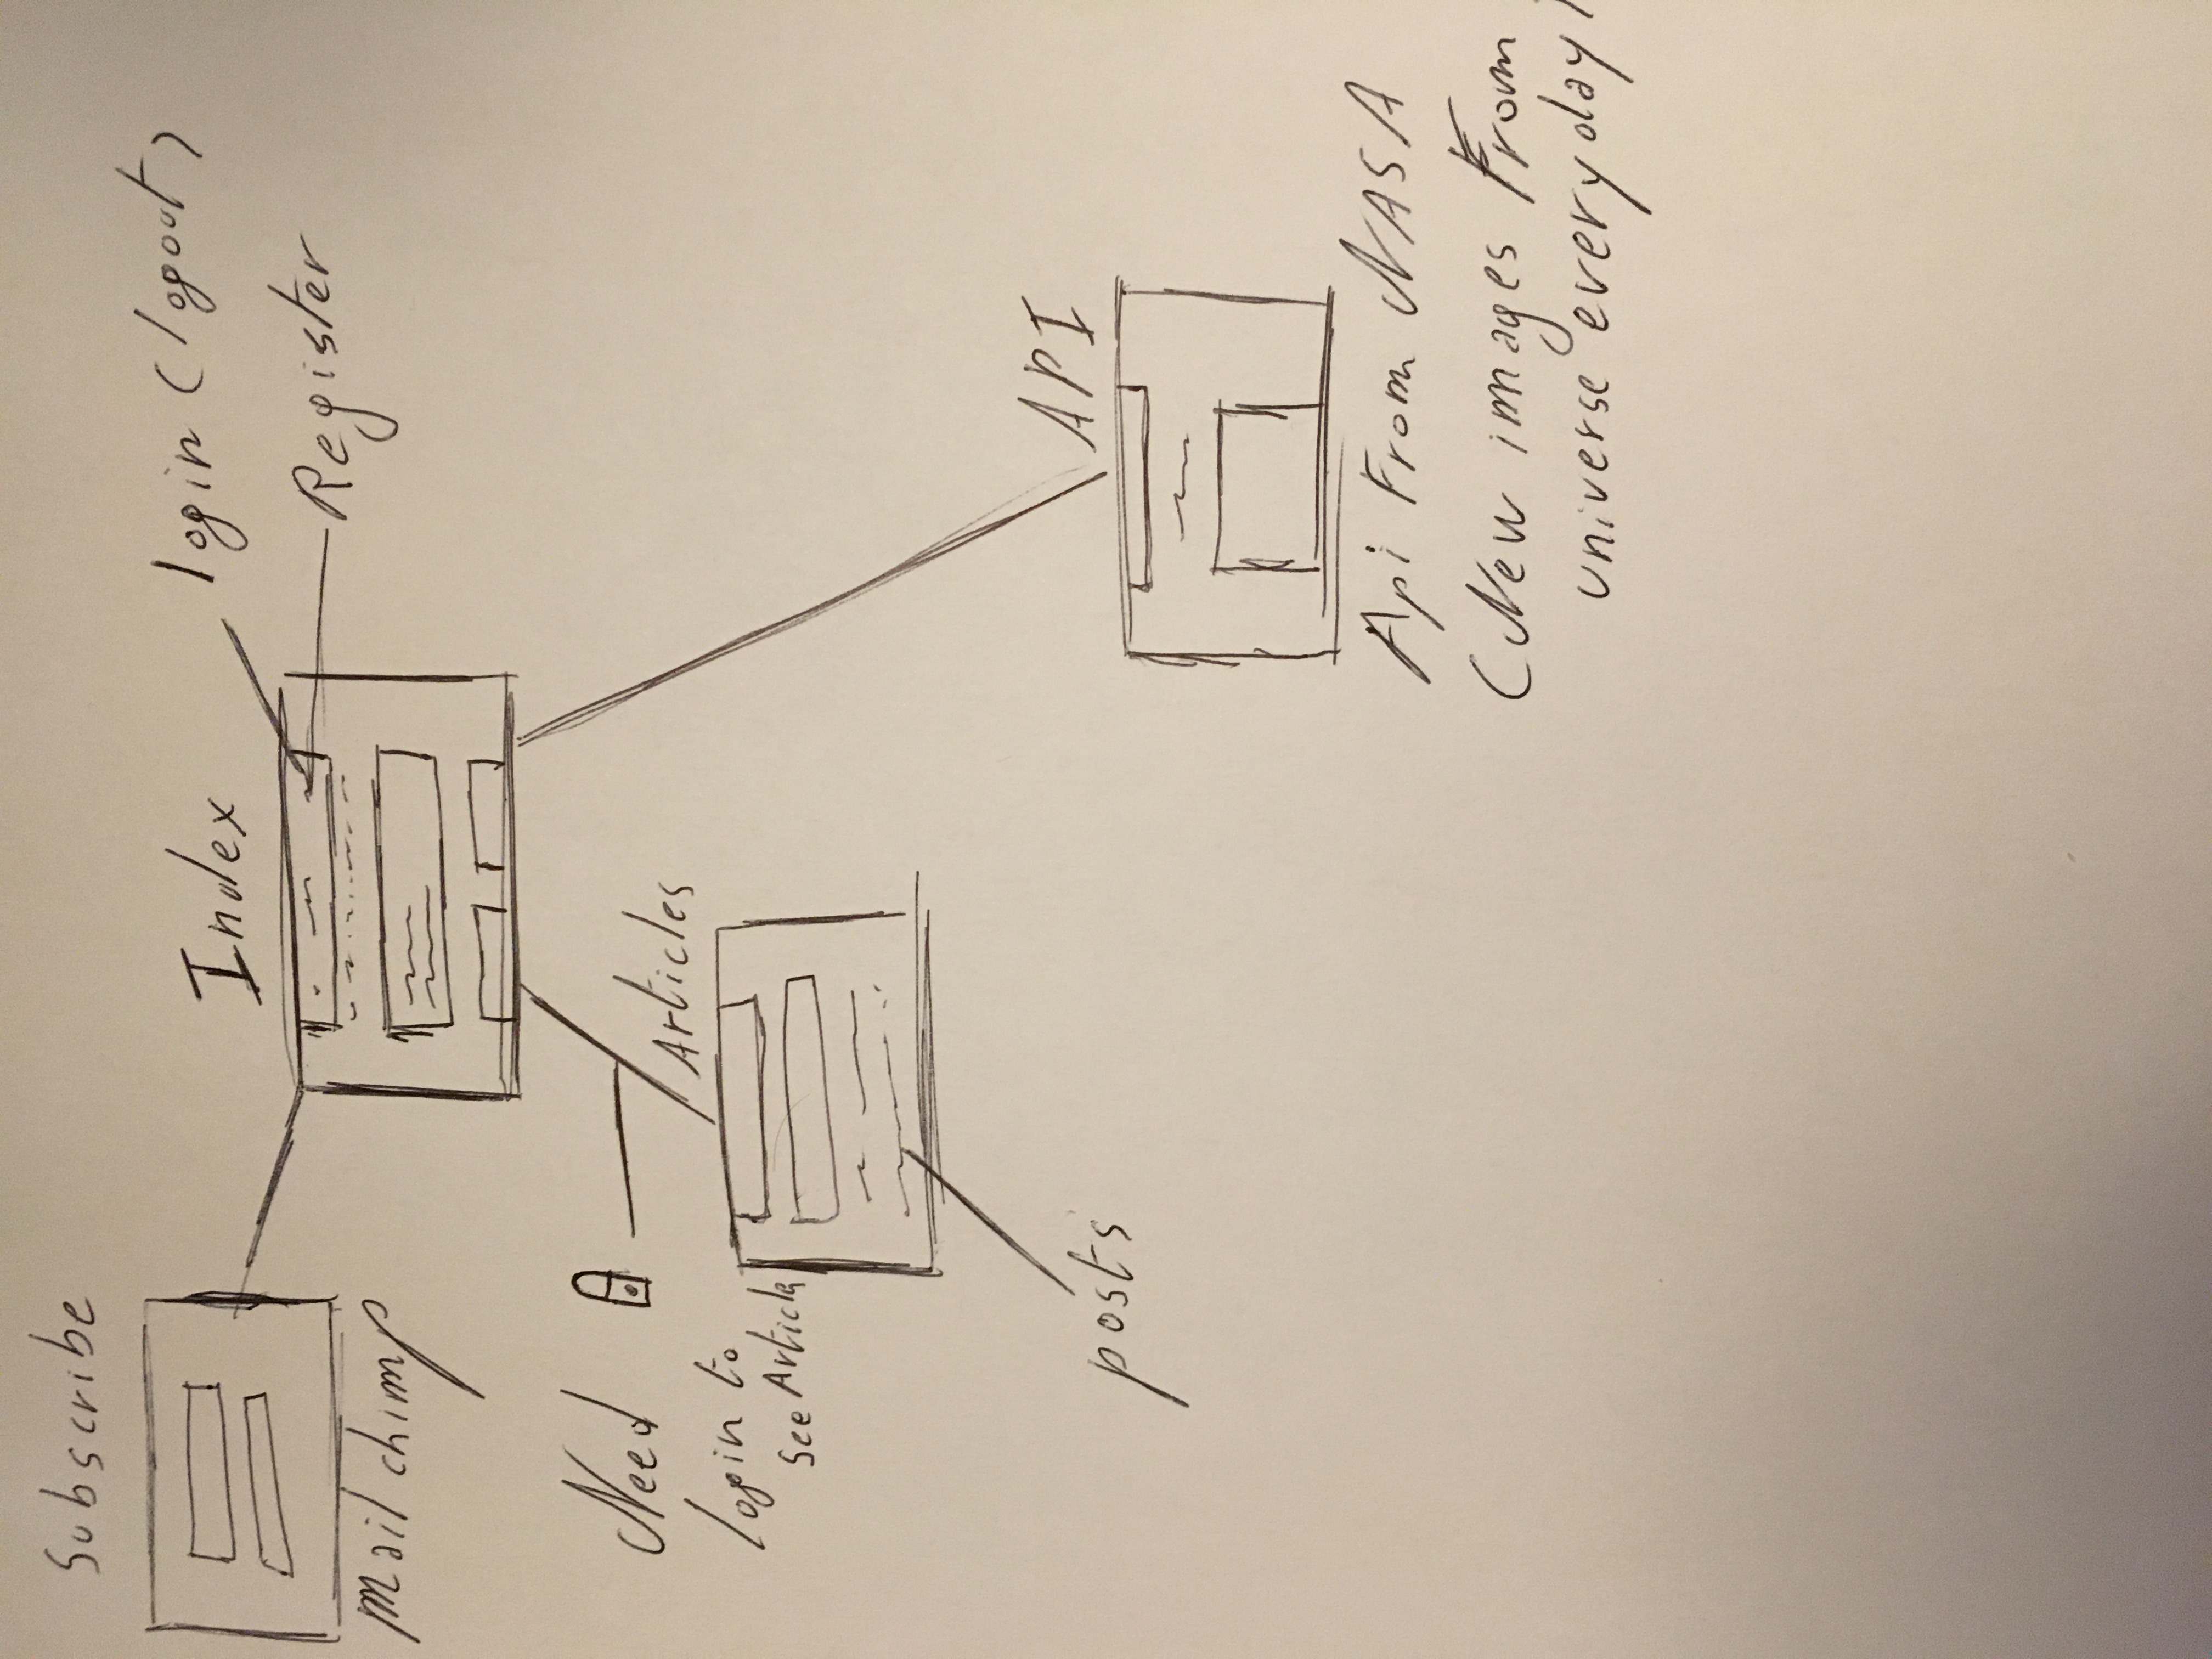 Subscribe
mail chimp
Index
login (logout)
Register
Need
login to
see Article
Articles
posts
API
Api From NASA
(New images From
universe everyday)